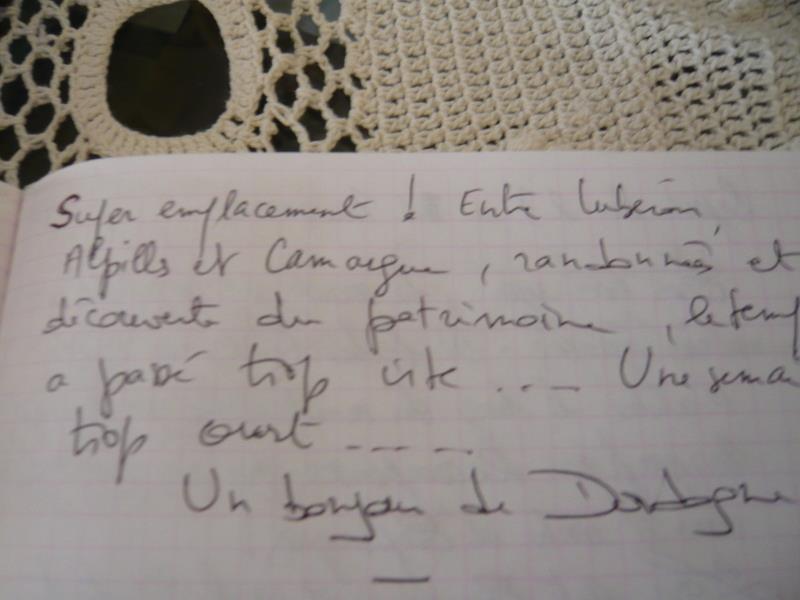 Super emplacement ! Entre Lubéron,
Alpilles et Camargue, randonnées et
découverte du patrimoine, le temp
a passé trop vite ....  Une sema
trop court ....
Un bonjour de Dordogne